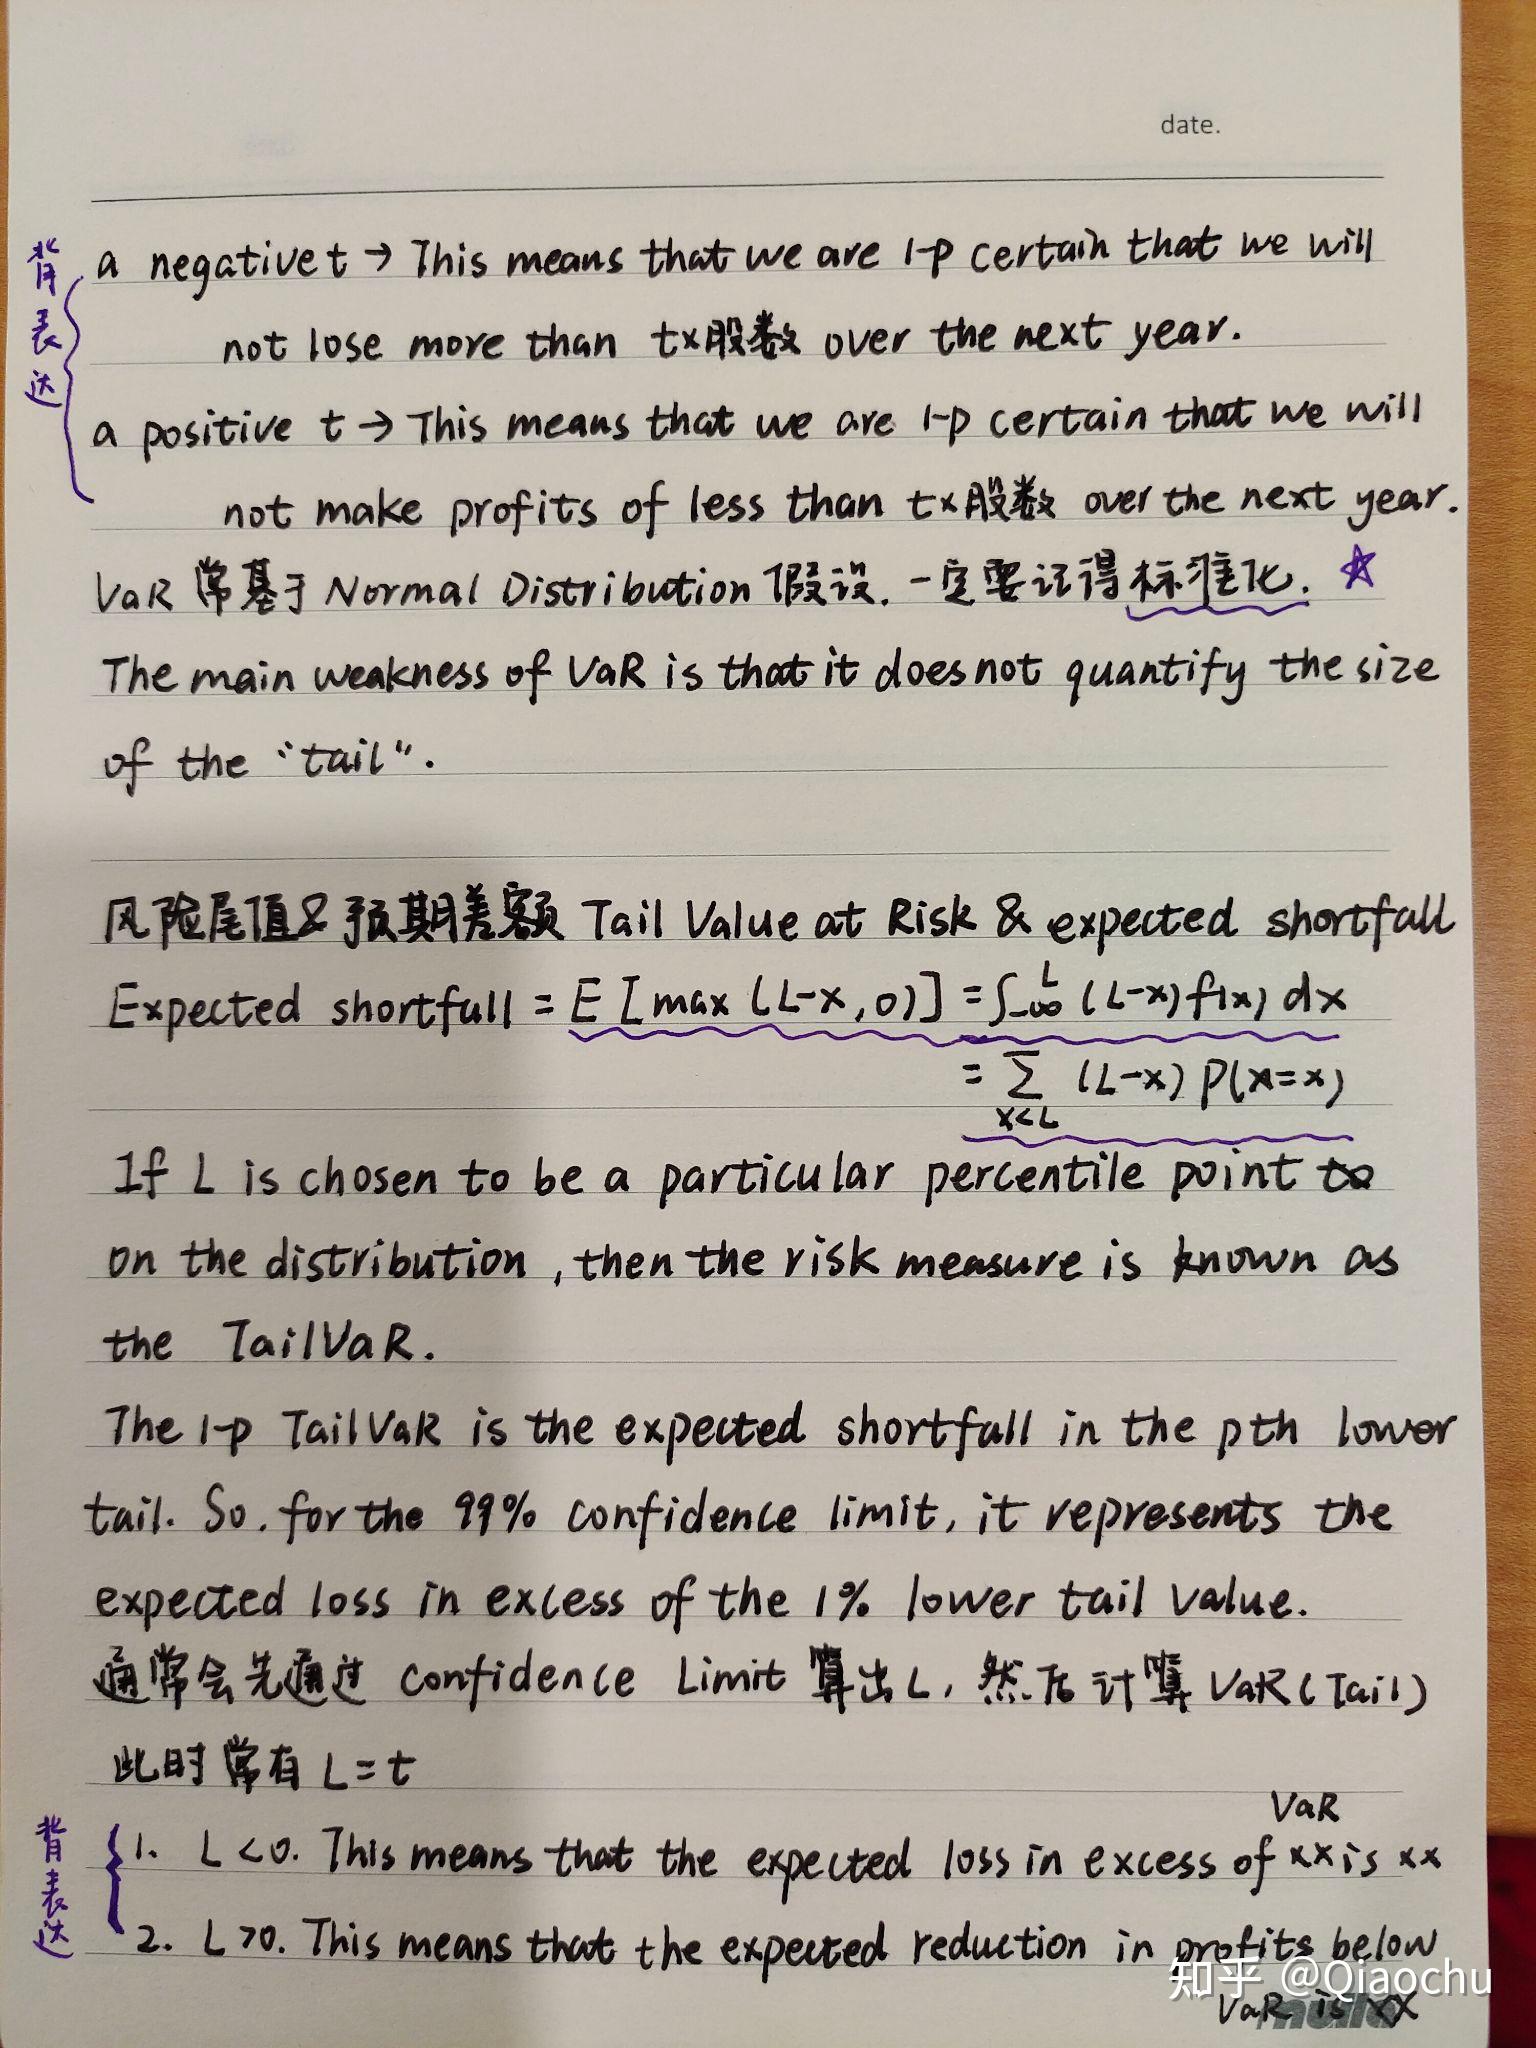 date.
背表达
a negative t → This means that we are 1-p certain that we will
not lose more than t×股数 over the next year.
a positive t → This means that we are 1-p certain that we will
not make profits of less than t×股数 over the next year.
VaR 常基于 Normal Distribution 假设. 一定要记得标准化. ☆
The main weakness of VaR is that it does not quantify the size
of the "tail".
风险尾值&预期差额 Tail Value at Risk & expected shortfall
Expected shortfall = E[max(L-x,0)] = ∫_{-∞}^{L} (L-x)f(x) dx
= Σ_{x<L} (L-x) P(X=x)
If L is chosen to be a particular percentile point to
on the distribution, then the risk measure is known as
the TailVaR.
The 1-p TailVaR is the expected shortfall in the pth lower
tail. So, for the 99% confidence limit, it represents the
expected loss in excess of the 1% lower tail value.
通常会先通过 confidence Limit 算出L, 然后计算 VaR(Tail)
此时常有 L=t
背表达
VaR
1. L<0. This means that the expected loss in excess of xx is xx
2. L>0. This means that the expected reduction in profits below
VaR is xx
知乎 @Qiaochu